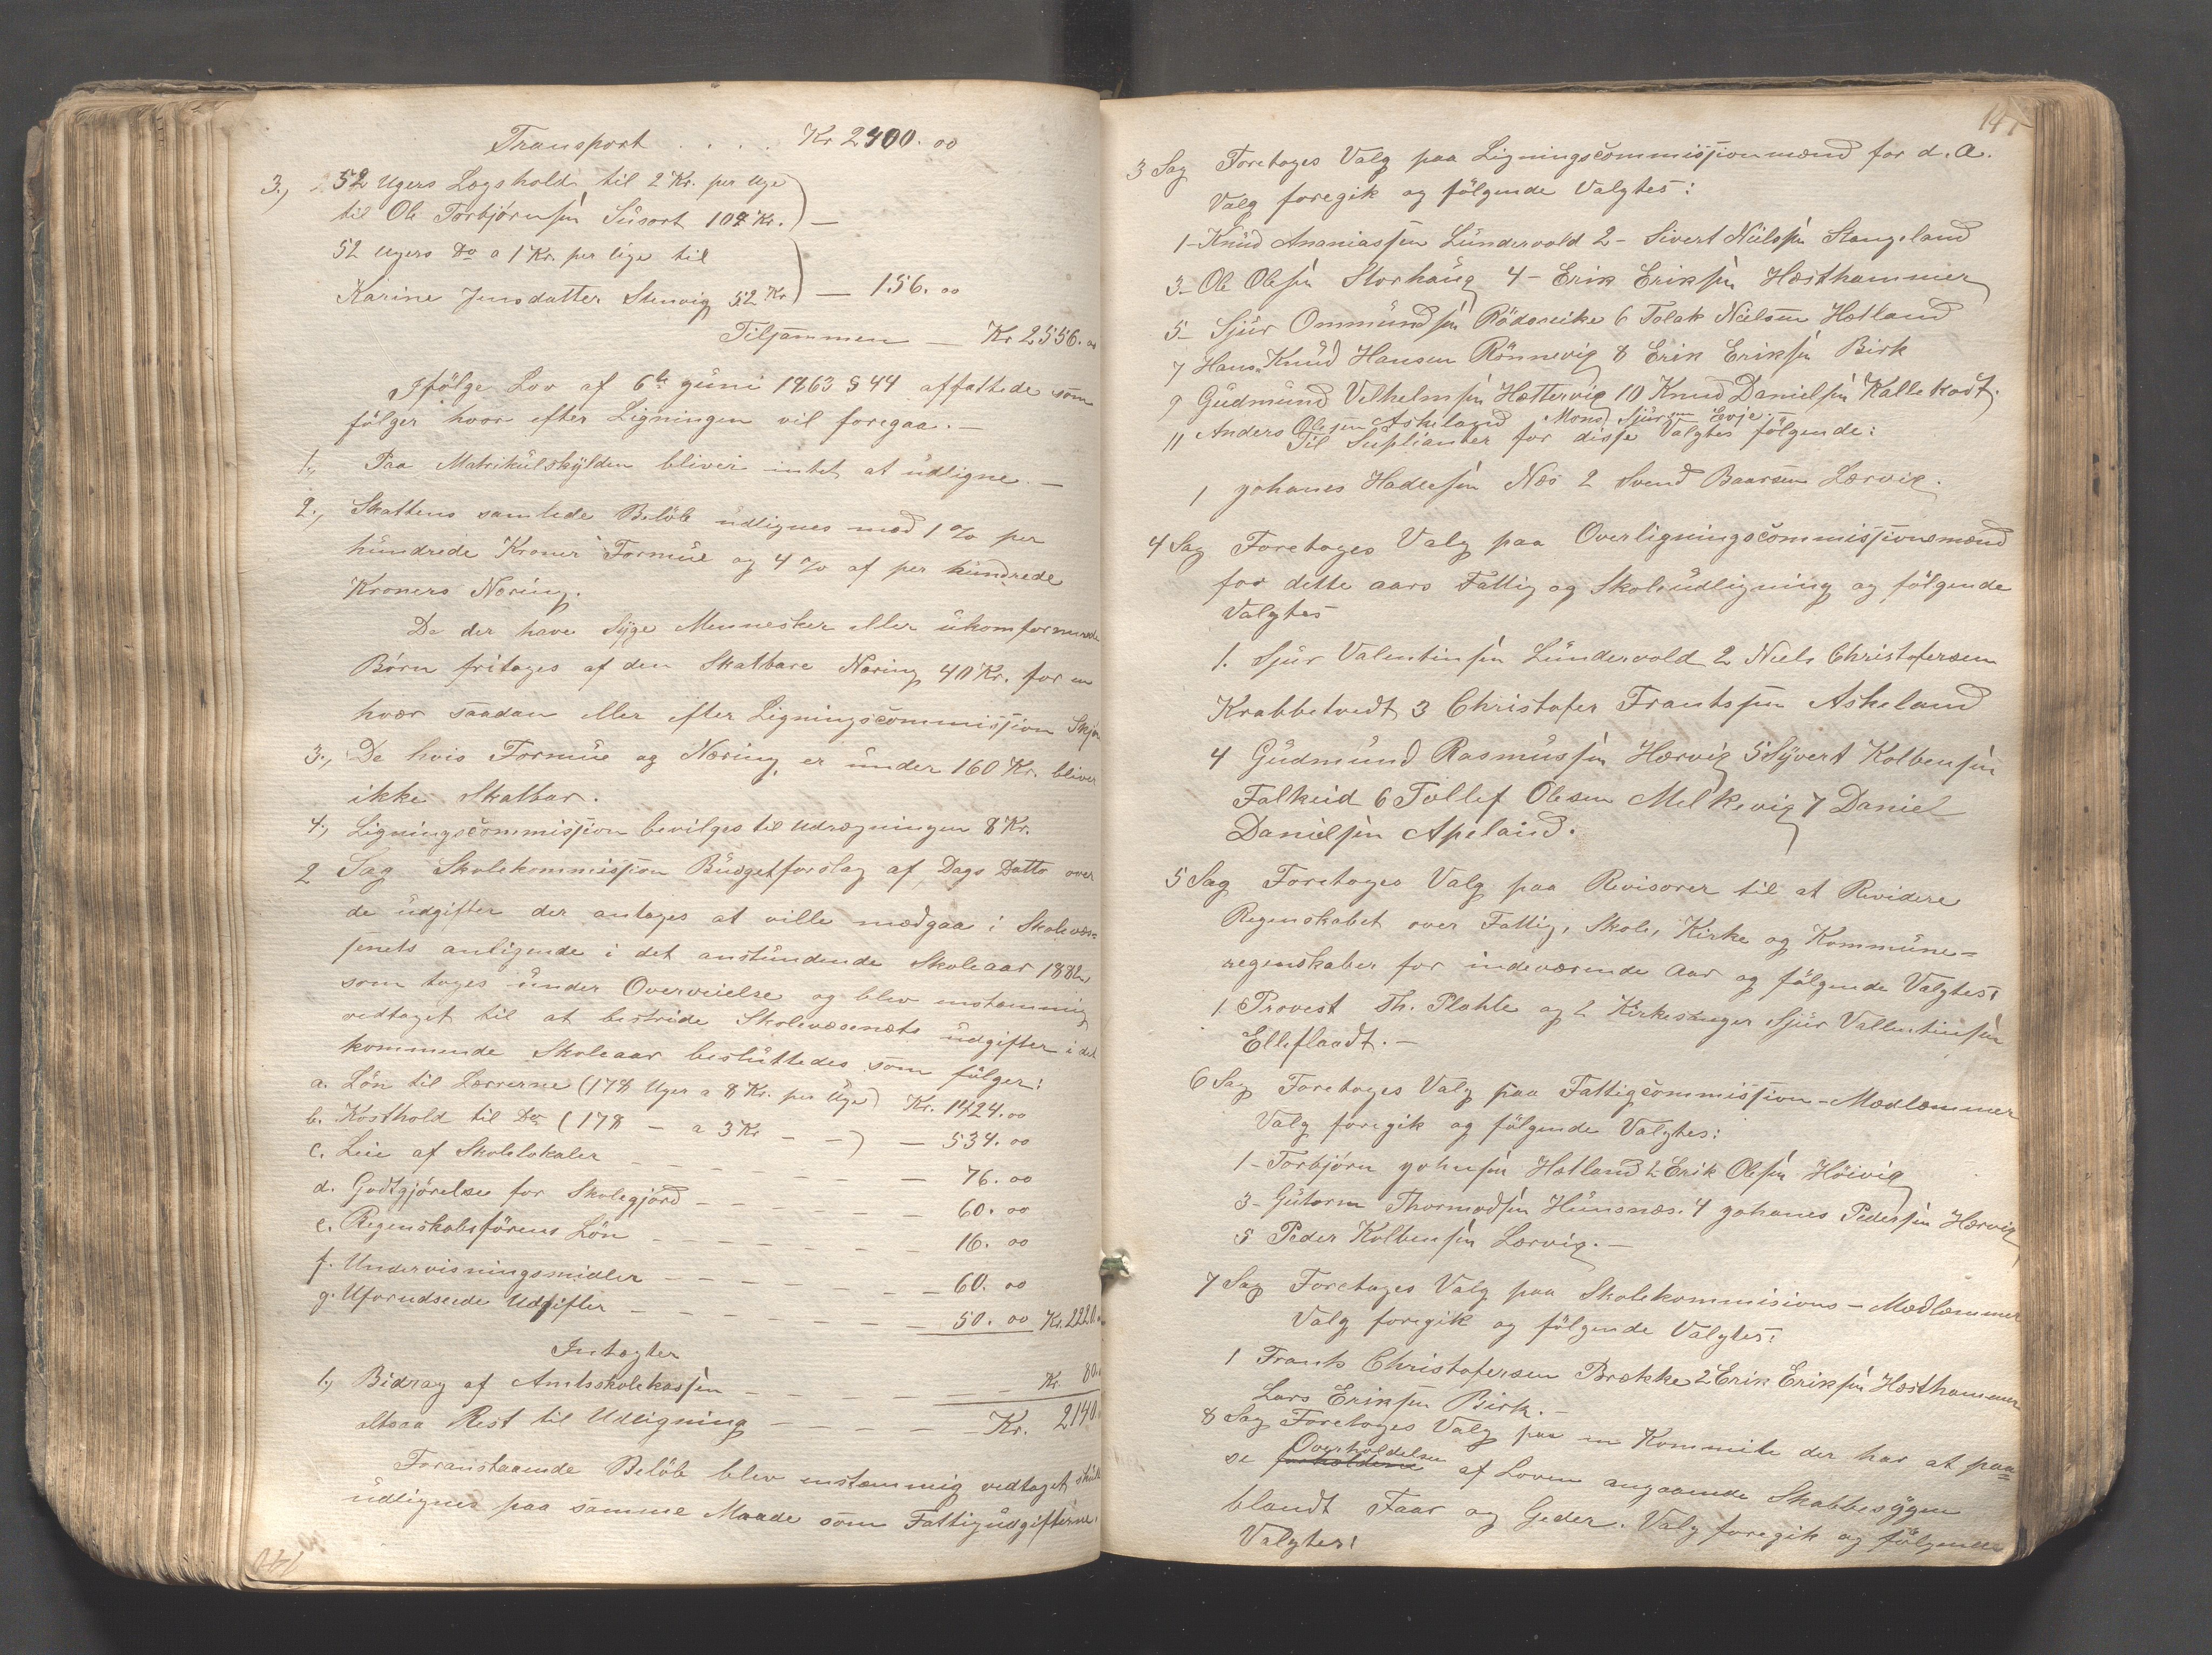 Transport . . . . Kr 2400. 00
3., 52 Ugers Lægshold til 2 Kr. per Uge
til Ole Torbjørnsen Susort 104 Kr. ) —
52 Ugers Do a 1 Kr. per Uge til
Karine Jensdatter Stenvig 52 Kr ) — 156. 00
Tilsammen — Kr 2556. 00
Ifølge Lov af 6te Juni 1863 § 44 affattede som
følger hvor efter Ligningen vil foregaa. —
1., Paa Matrikulskylden bliver intet at udligne. —
2., Skattens samlede Beløb udlignes med 1 % per
hundrede Kroner Formue og 4 % af per hundrede
Kroners Næring.
De der have Syge Mennesker eller ukomformerede
Børn fritages af den Skatbare Næring 40 Kr. for en
hvær saadan eller efter Ligningscommission Skjøn
3., De hvis Formue og Næring er under 160 Kr. bliver
ikke Skatbar.
4., Ligningscommission bevilges til Udregningen 8 Kr.
2 Sag Skolekommission Budgetforslag af Dags Datto over
de udgifter der antages at ville medgaa i Skolevæs=
senets anligende i det anstundende Skoleaar 1882,
som toges under Overveielse og blev enstæmmig
vedtaget til at bestride Skolevæsenets udgifter i det
kommende Skoleaar besluttedes som følger:
a. Løn til Lærerne (178 Uger a 8 Kr. per Uge) Kr. 1424. 00
b. Kosthold til Do (178 — a 3 Kr — —) — 534. 00
c. Leie af Skolelokaler — — — — — 76. 00
d. Godtgjørelse for Skolegjord — — — — — 60. 00
e. Regenskabsførens Løn — — — — — 16. 00
f. Undervisningsmidler — — — — — 60. 00
g. Uforudseede Udgifter — — — — — 50. 00 Kr. 2220.
Intægter
1., Bidrag af Amtsskolekassen — — — — Kr. 80.
altsaa Rest til Udligning — — — — Kr. 2140.
Foranstaaende Beløb blev enstæmmig vedtaget skulle
udlignes paa samme Maade som Fattigudgifterne.
140
147
3 Sag Foretoges Valg paa Ligningscommissionmænd for d. A.
Valg foregik og følgende Valgtes:
1- Knud Ananiassen Lundervold 2- Sivert Nielsen Stangeland
3- Ole Olesen Storhaug 4- Erik Eriksen Hæsthammer
5- Sjur Ommundsen Rødereike 6 Tolak Nielsen Hetland
7 Hans Knud Hansen Rønnevig 8 Erik Eriksen Birk
9 Gudmund Velhelmsen Hættervig 10 Knud Danielsen Kallekodt.
11 Anders Olesen Askeland Mons Sjursen Evje.
Til Suplianter for disse Valgtes følgende:
1 Johanes Hadlesen Næs 2 Svend Baarsen Lærvig.
4 Sag Foretoges Valg paa Overligningscommissionsmænd
for dette aars Fattig og Skoleudligning og følgende
Valgtes
1. Sjur Valentinsen Lundervold 2 Niels Christofersen
Krabbetvedt 3 Christofer Frantssen Askeland
4 Gudmund Rasmussen Hærvig 5 Syvert Kolbensen
Falkeid 6 Tollef Olesen Melkevig 7 Daniel
Danielsen Apeland.
5 Sag Foretoges Valg paa Revisorer til at Revidere
Regenskabet over Fattig, Skole, Kirke og Kommune=
regenskaber for indeværende Aar og følgende Valgtes:
1 Provest Th. Plahte og 2 Kirkesanger Sjur Vallentinsen
Elleflaadt. —
6 Sag Foretoges Valg paa Fattigcommission-Medlemmer
Valg foregik og følgende Valgtes:
1- Torbjørn Johnsen Hetland 2 Erik Olesen Høivig
3- Gutorm Thormodsen Hunsnæs. 4 Johanes Pedersen Hærvig
5 Peder Kolbensen Lærvig. —
7 Sag Foretoges Valg paa Skolekommisions-Medlemmer
Valg foregik og følgende Valgtes:
1 Frants Christofersen Brekke 2 Erik Eriksen Hæsthammer
Lars Eriksen Birk. —
8 Sag Foretoges Valg paa en Kommite der har at paa=
se Overholdelsen af Loven angaaende Skabbesygen
blandt Faar og Geder. Valg foregik og følgende
Valgtes: